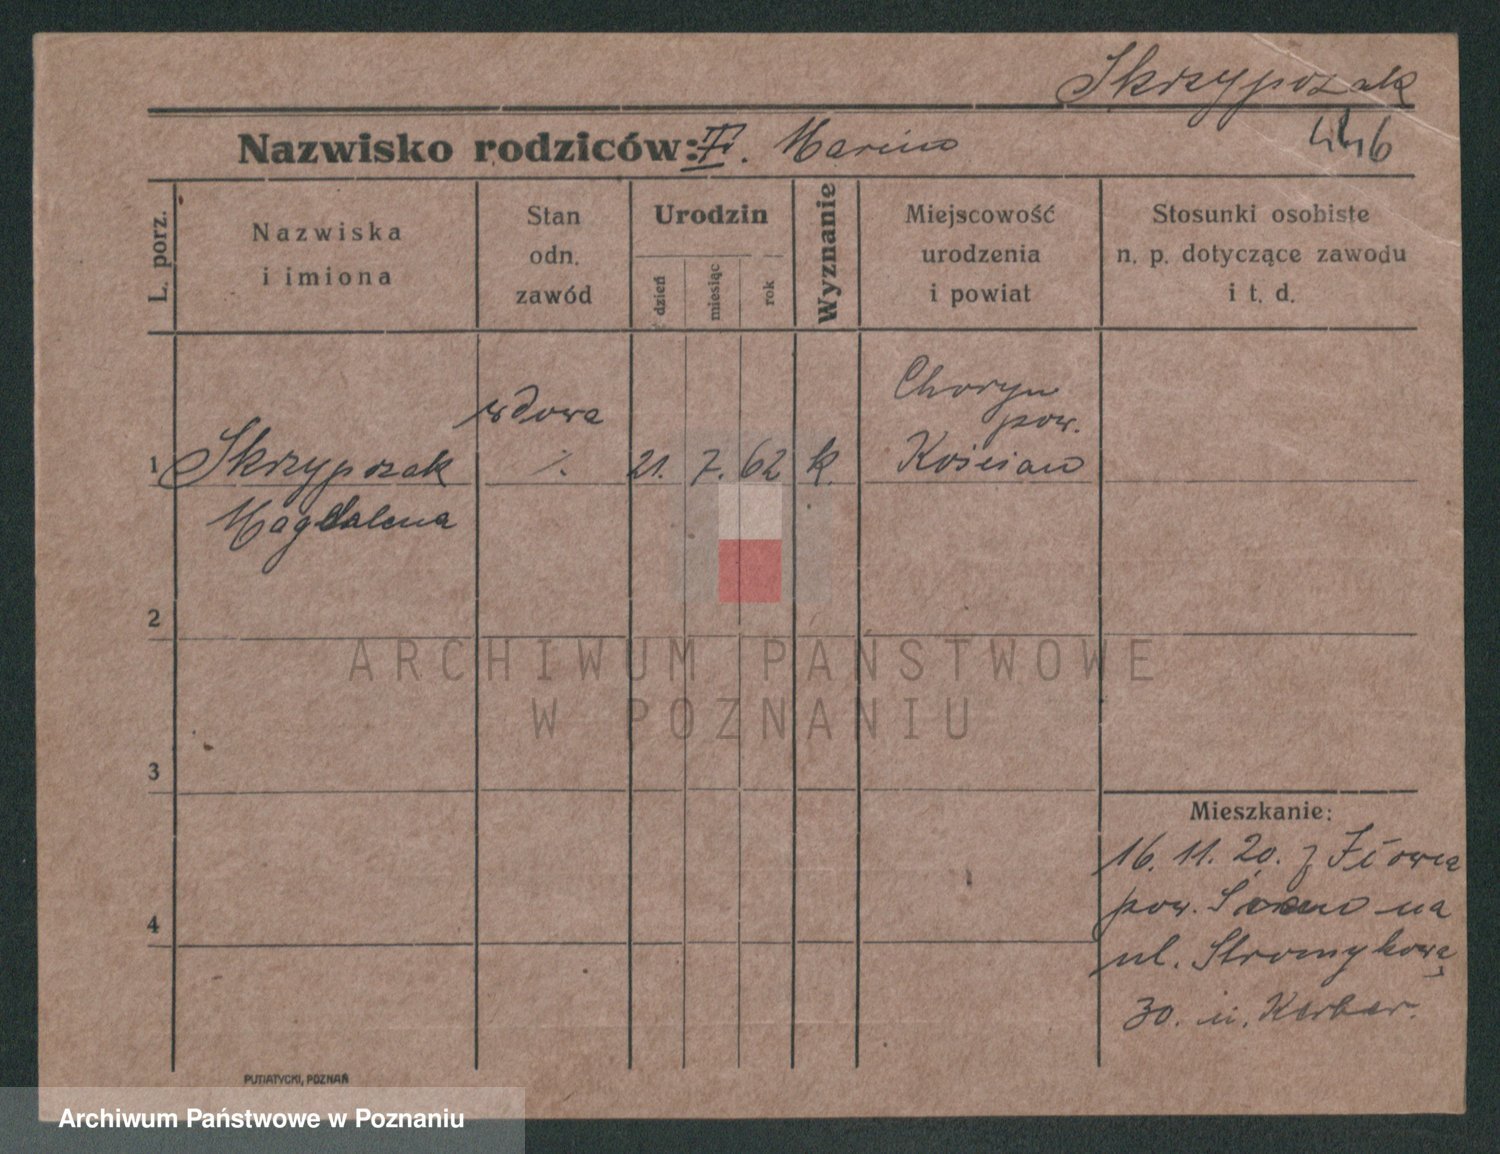 Skrzypczak
Nazwisko rodziców: Marciu
446
L. porz.
Nazwiska
i imiona
Stan
odn.
zawód
Urodzin
dzień
miesiąc
rok
Wyznanie
Miejscowość
urodzenia
i powiat
Stosunki osobiste
n. p. dotyczące zawodu
i t. d.
1
Skrzypczak
Magdalena
wdowa
%.
21. 7. 62
k.
Choryn
pow.
Kościan
2
3
4
Mieszkanie:
16. 11. 20. z Iłowca
pow. Śrem na
ul. Stromykową
30. u. Kerber.
PUTIATYCKI, POZNAŃ
ARCHIWUM PAŃSTWOWE
W POZNANIU
Archiwum Państwowe w Poznaniu